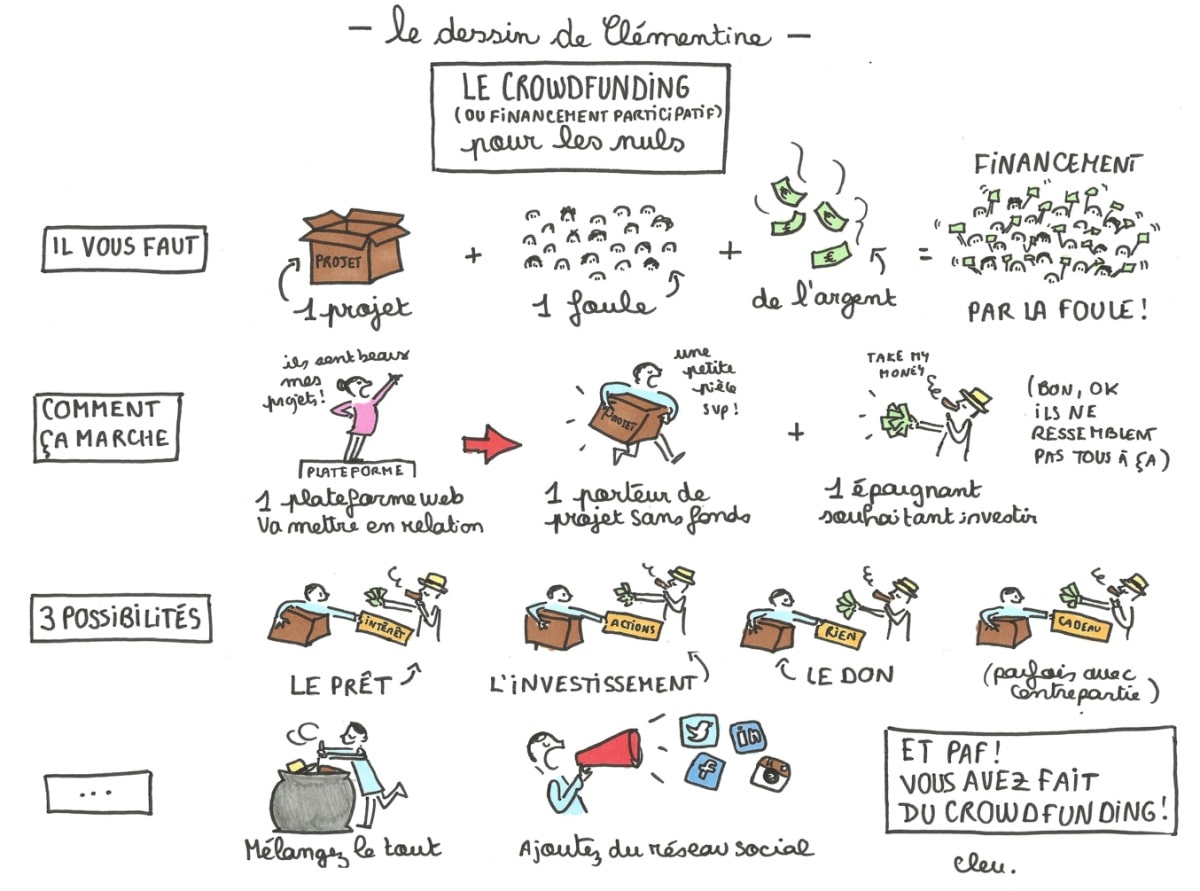 – le dessin de Clémentine –
LE CROWDFUNDING
(OU FINANCEMENT PARTICIPATIF)
pour les nuls
IL VOUS FAUT
PROJET
1 projet
+
1 foule
+
€
€
€
€
de l'argent
=
FINANCEMENT
PAR LA FOULE !
COMMENT
ÇA MARCHE
ils sont beaux
mes
projets !
PLATEFORME
1 plateforme web
va mettre en relation
PROJET
une
petite
pièce
SVP !
1 porteur de
projet sans fonds
+
TAKE MY
MONEY
1 épargnant
souhaitant investir
(BON, OK
ILS NE
RESSEMBLENT
PAS TOUS À ÇA)
3 POSSIBILITÉS
INTÉRÊT
LE PRÊT
ACTIONS
L'INVESTISSEMENT
RIEN
LE DON
CADEAU
(parfois avec
contrepartie)
...
Mélangez le tout
in
f
Ajoutez du réseau social
ET PAF !
VOUS AVEZ FAIT
DU CROWDFUNDING !
Clem.